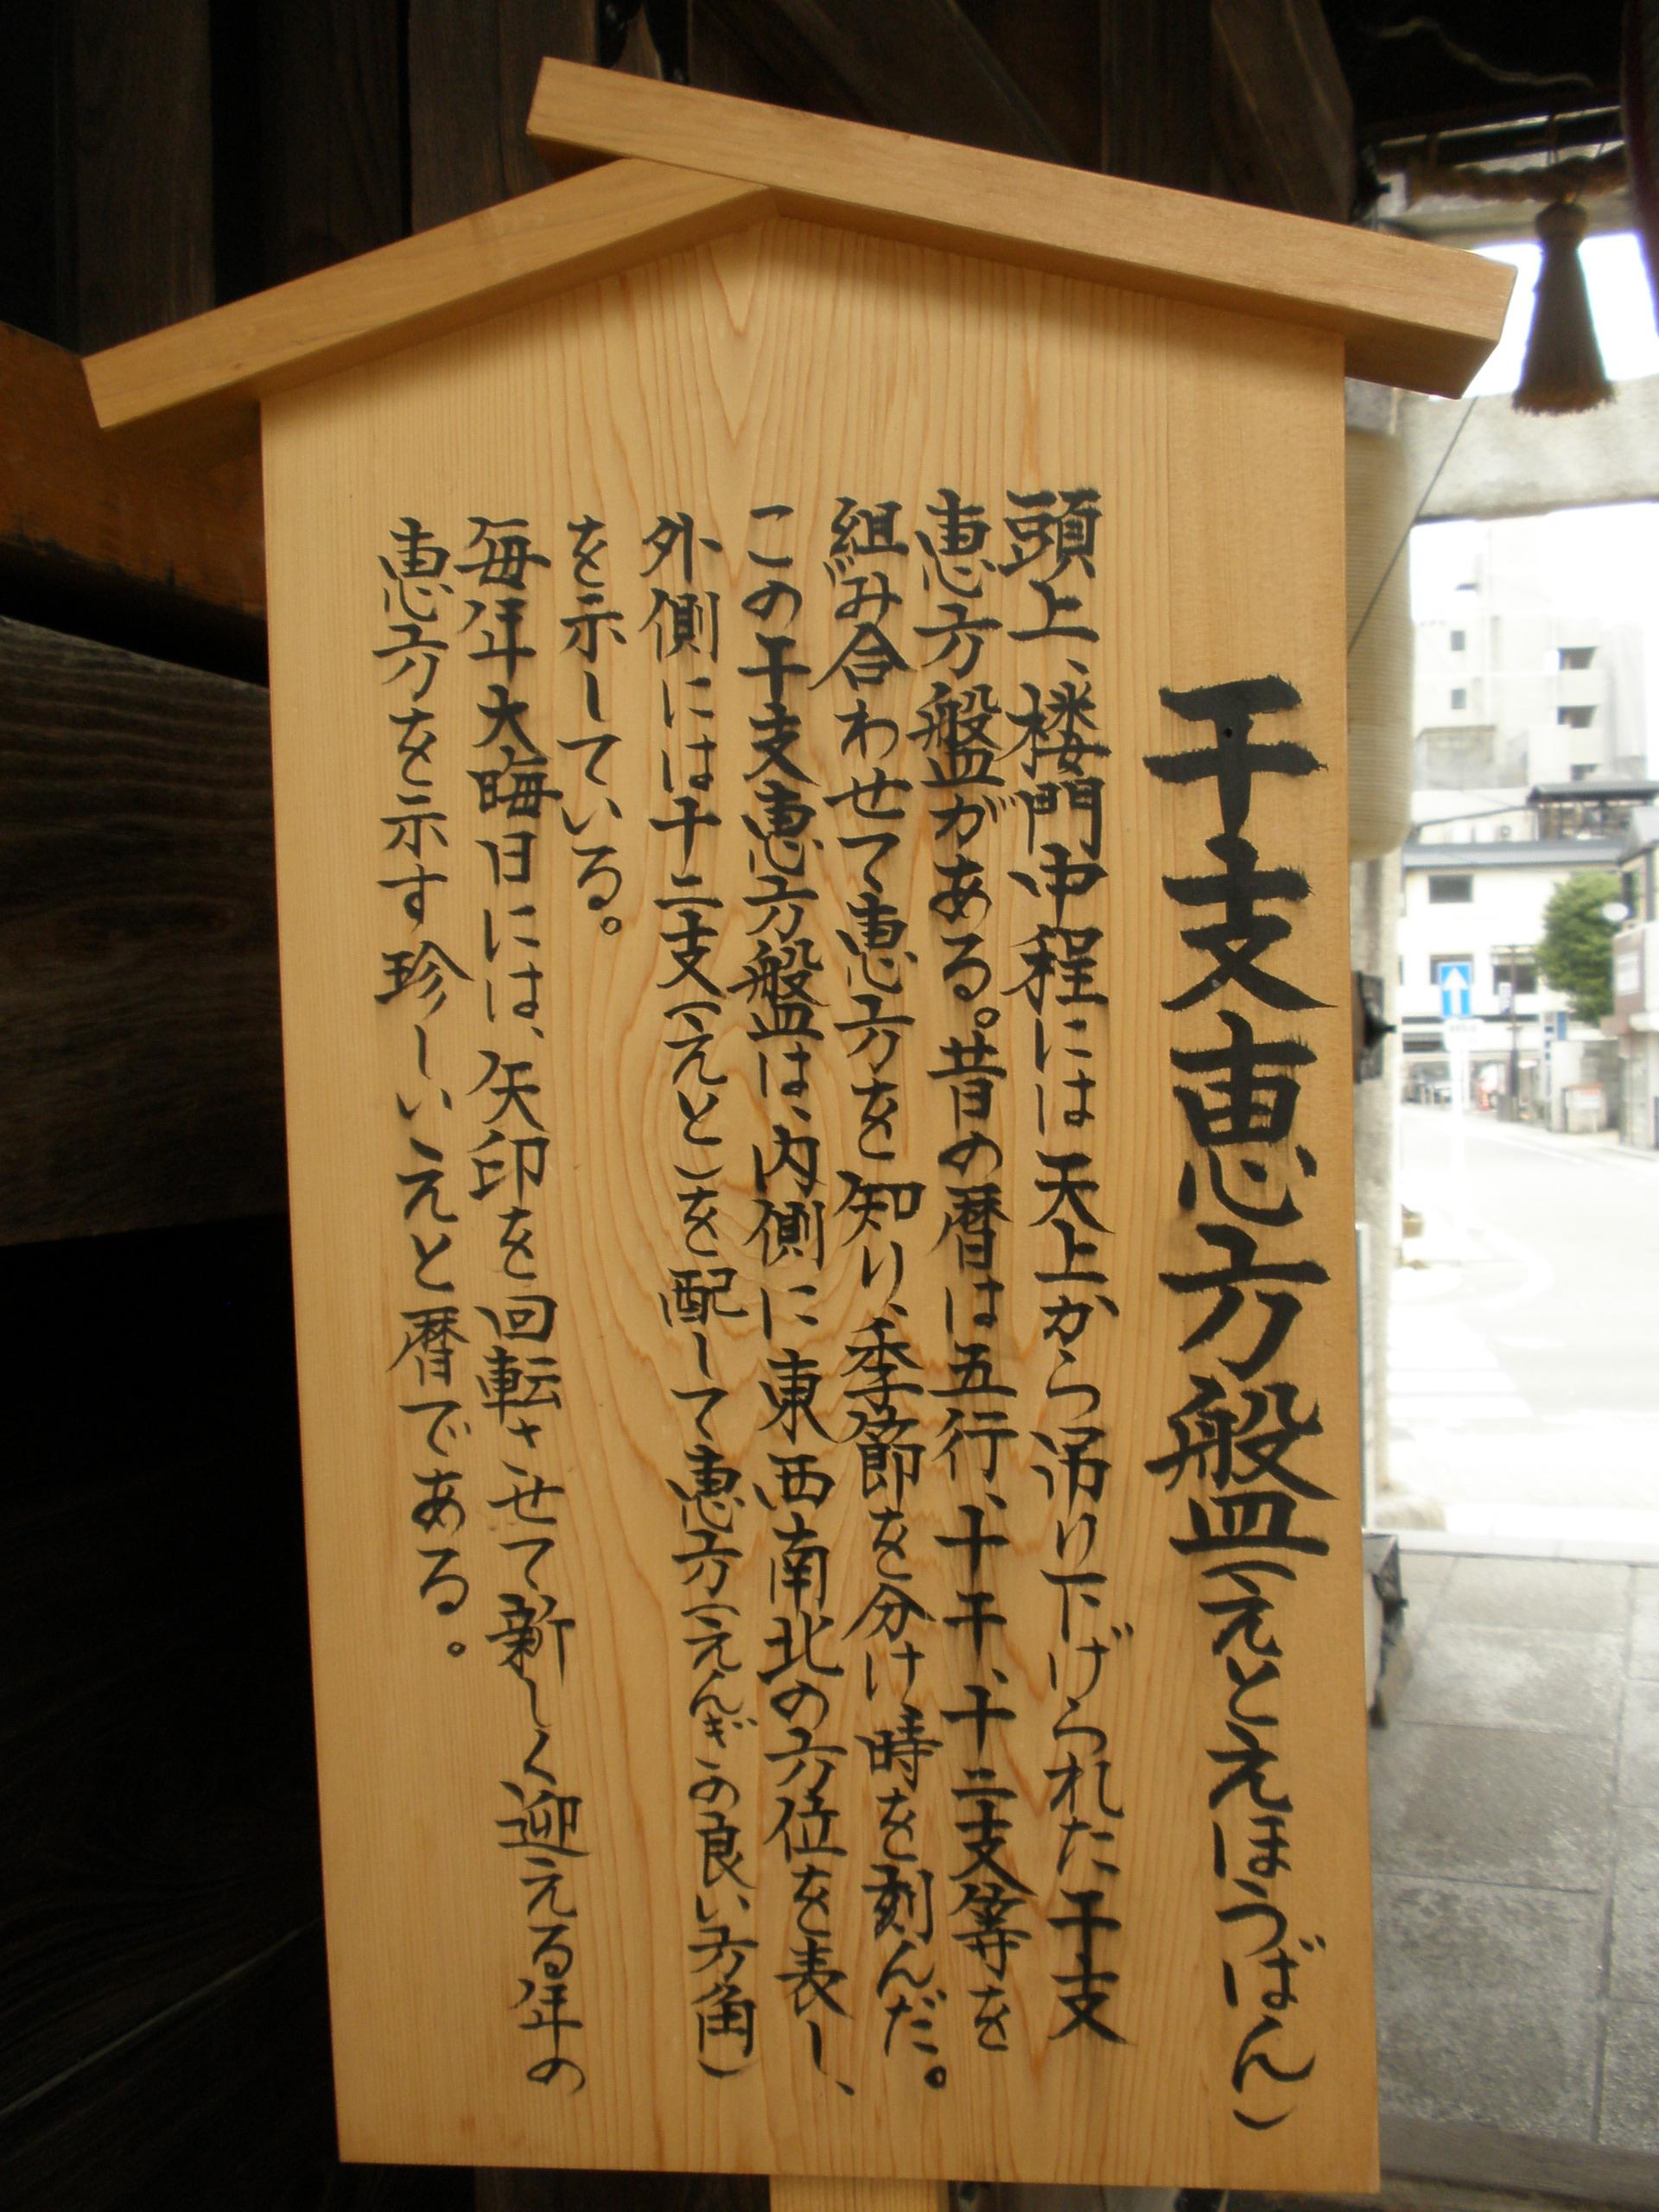 干支恵方盤(えとえほうばん)
頭上、楼門中程には天上から吊り下げられた干支
恵方盤がある。昔の暦は五行、十干、十二支等を
組み合わせて恵方を知り、季節を分け時を刻んだ。
この干支恵方盤は、内側に東西南北の方位を表し、
外側には十二支(えと)を配して恵方(えんぎの良い方角)
を示している。
毎年大晦日には、矢印を回転させて新しく迎える年の
恵方を示す珍しいえと暦である。